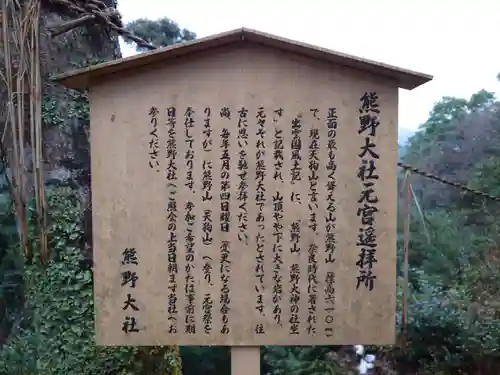 熊野大社元宮遥拝所
正面の最も高く聳える山が熊野山（標高六一〇ｍ）
で、現在天狗山と言います。奈良時代に著された
『出雲国風土記』に、「熊野山、熊野大神の社坐
す」と記載され、山頂やや下に大きな岩があり、
元々それが熊野大社であったとされています。往
古に思いを馳せ参拝ください。
尚、毎年五月の第四日曜日（変更になる場合もあ
りますが）に熊野山（天狗山）へ登り、元宮祭を
奉仕しております。参加ご希望のかたは事前に期
日等を熊野大社へご照会の上当日朝まず当社へお
参りください。
熊野大社